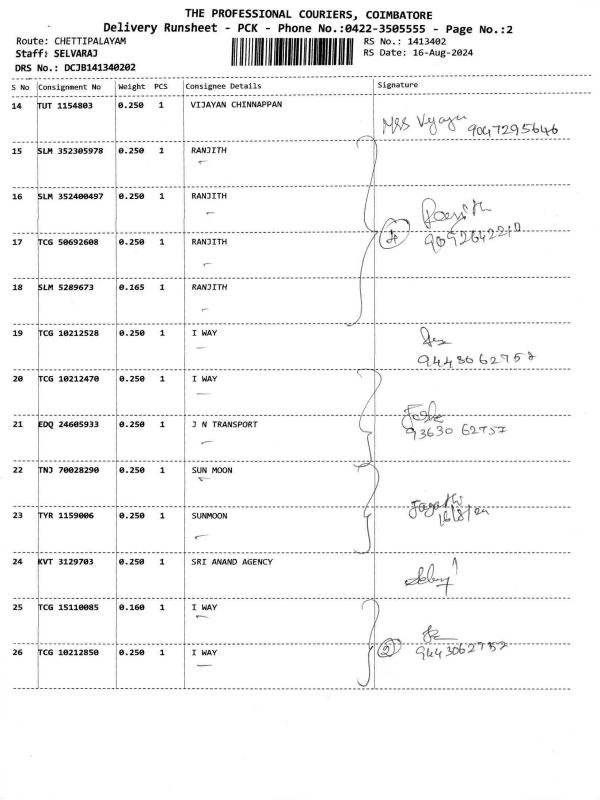 THE PROFESSIONAL COURIERS, COIMBATORE
Delivery Runsheet - PCK - Phone No.:0422-3505555 - Page No.:2
Route: CHETTIPALAYAM RS No.: 1413402
Staff: SELVARAJ RS Date: 16-Aug-2024
DRS No.: DCJB141340202
S No Consignment No Weight PCS Consignee Details Signature
14 TUT 1154803 0.250 1 VIJAYAN CHINNAPPAN
9047295646
15 SLM 352305978 0.250 1 RANJITH
16 SLM 352400497 0.250 1 RANJITH
17 TCG 50692608 0.250 1 RANJITH
4
18 SLM 5289673 0.165 1 RANJITH
19 TCG 10212528 0.250 1 I WAY
9443062752
20 TCG 10212470 0.250 1 I WAY
21 EDQ 24605933 0.250 1 J N TRANSPORT
93630 62757
22 TNJ 70028290 0.250 1 SUN MOON
23 TYR 1159006 0.250 1 SUNMOON
16/8/24
24 KVT 3129703 0.250 1 SRI ANAND AGENCY
25 TCG 15110085 0.160 1 I WAY
26 TCG 10212850 0.250 1 I WAY
2 9443062752